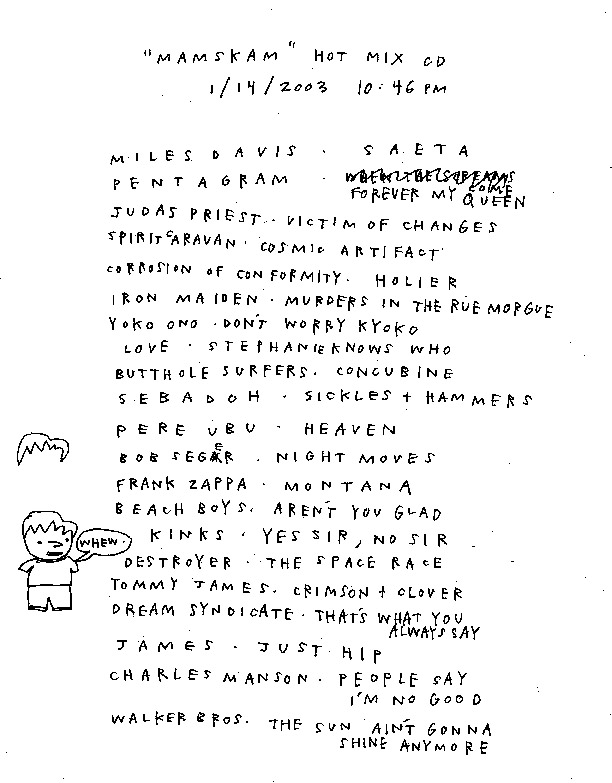 "MAMSKAM" HOT MIX CD
1/14/2003 10:46 PM
MILES DAVIS · SAETA
PENTAGRAM ·
FOREVER MY QUEEN
JUDAS PRIEST · VICTIM OF CHANGES
SPIRIT CARAVAN · COSMIC ARTIFACT
CORROSION OF CONFORMITY · HOLIER
IRON MAIDEN · MURDERS IN THE RUE MORGUE
YOKO ONO · DON'T WORRY KYOKO
LOVE · STEPHANIE KNOWS WHO
BUTTHOLE SURFERS · CONCUBINE
SEBADOH · SICKLES + HAMMERS
PERE UBU · HEAVEN
BOB SEGER · NIGHT MOVES
FRANK ZAPPA · MONTANA
BEACH BOYS · AREN'T YOU GLAD
KINKS · YES SIR, NO SIR
WHEW.
DESTROYER · THE SPACE RACE
TOMMY JAMES · CRIMSON + CLOVER
DREAM SYNDICATE · THAT'S WHAT YOU
ALWAYS SAY
JAMES · JUST HIP
CHARLES MANSON · PEOPLE SAY
I'M NO GOOD
WALKER BROS. THE SUN AIN'T GONNA
SHINE ANYMORE